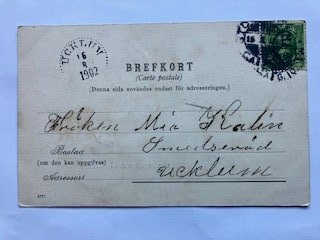 UCKLUM
16
8
1902
BREFKORT
(Carte postale)
(Denna sida användes endast för adresseringen.)
Fröken Mia Kalin
Bostad
(om den kan uppgifvas)
Adressort
Ucklum